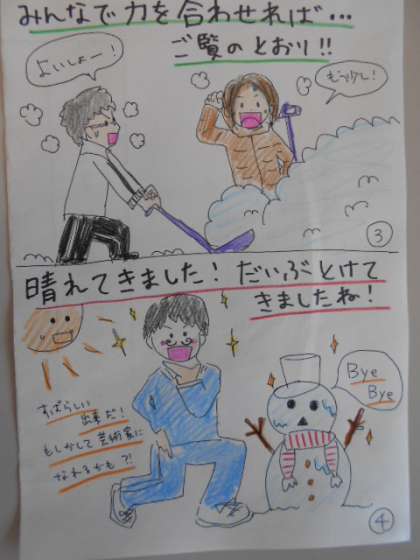 みんなで力を合わせれば…
ご覧のとおり!!
よいしょー!
もう少し!
③
晴れてきました! だいぶとけて
きましたね!
すばらしい
出来だ!
もしかして芸術家に
なれるかも?!
Bye
Bye
④